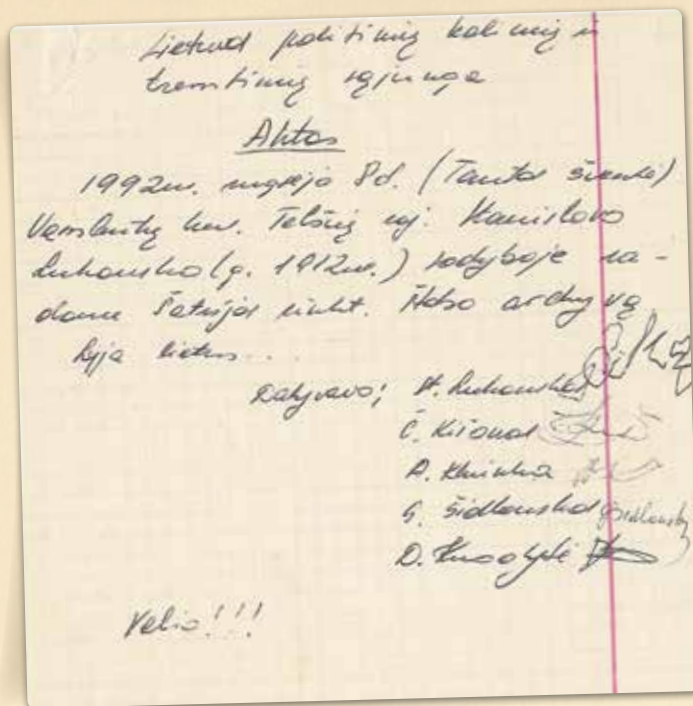 Lietuvos politinių kalinių ir
tremtinių sąjunga
Aktas
1992m. rugsėjo 8d. (Tautos šventė)
km. Telšių raj. Stanislovo
Lukausko (g. 1912m.) sodyboje ra-
dome Šatrijos rinkt. štabo archyvą
Lyja lietus...
Dalyvavo; St. Lukauskas
Č. Kišonas
A. Klinka
G. Šidlauskas GŠidlauskas
D.
Valio!!!